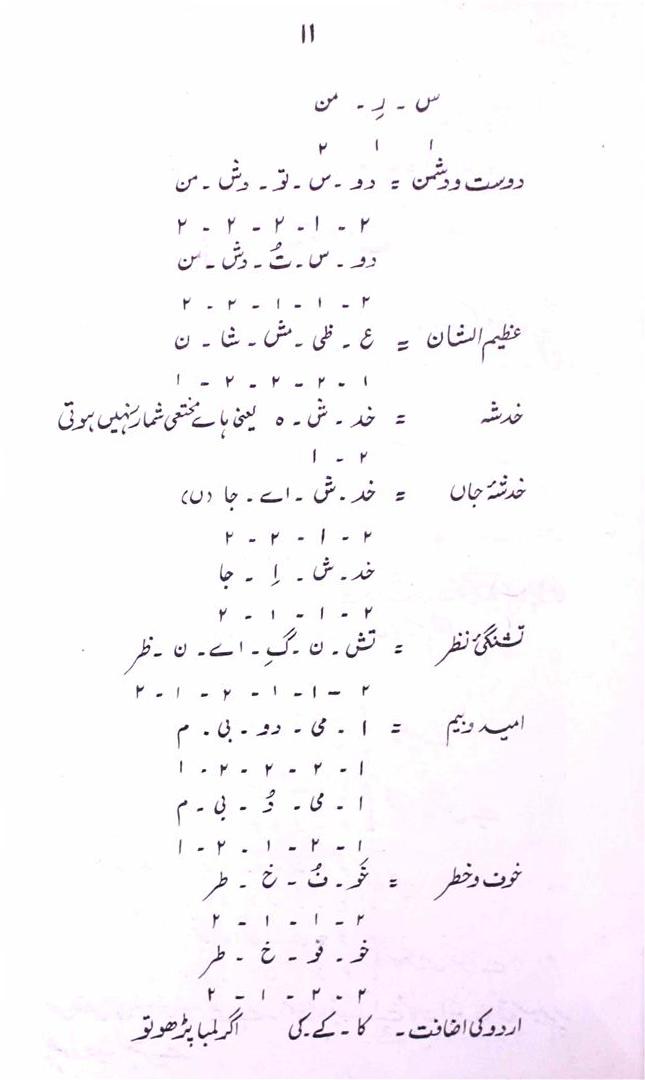 ۱۱
س ۔ رِ ۔ من
۱ ۱ ۲
دوست و دشمن = دو ۔ س ۔ تو ۔ دش ۔ من
۲ ۔ ۱ ۔ ۲ ۔ ۲ ۔ ۲
دو ۔ س ۔ تُ ۔ دش ۔ من
۲ ۔ ۱ ۔ ۱ ۔ ۲ ۔ ۲
عظیم الشان = ع ۔ ظی ۔ مش ۔ شا ۔ ن
۱ ۔ ۲ ۔ ۲ ۔ ۲ ۔ ۱
خدشہ = خد ۔ ش ۔ ہ یعنی ہائے مختفی شمار نہیں ہوتی
۲ ۔ ۱
خدشۂ جاں = خد ۔ ش ۔ اے ۔ جا (ں)
۲ ۔ ۱ ۔ ۲ ۔ ۲
خد ۔ ش ۔ اِ ۔ جا
۲ ۔ ۱ ۔ ۱ ۔ ۲
تشنگئ نظر = تش ۔ ن ۔ گِ ۔ اے ۔ ن ۔ ظر
۲ ۔ ۱ ۔ ۱ ۔ ۲ ۔ ۱ ۔ ۲
امید و بیم = ا ۔ می ۔ دو ۔ بی ۔ م
۱ ۔ ۲ ۔ ۲ ۔ ۲ ۔ ۱
ا ۔ می ۔ دُ ۔ بی ۔ م
۱ ۔ ۲ ۔ ۱ ۔ ۲ ۔ ۱
خوف و خطر = خَو ۔ فُ ۔ خ ۔ طر
۲ ۔ ۱ ۔ ۱ ۔ ۲
خو ۔ فو ۔ خ ۔ طر
۲ ۔ ۲ ۔ ۱ ۔ ۲
اردو کی اضافت ۔ کا ۔ کے ۔ کی اگر لمبا پڑھو تو